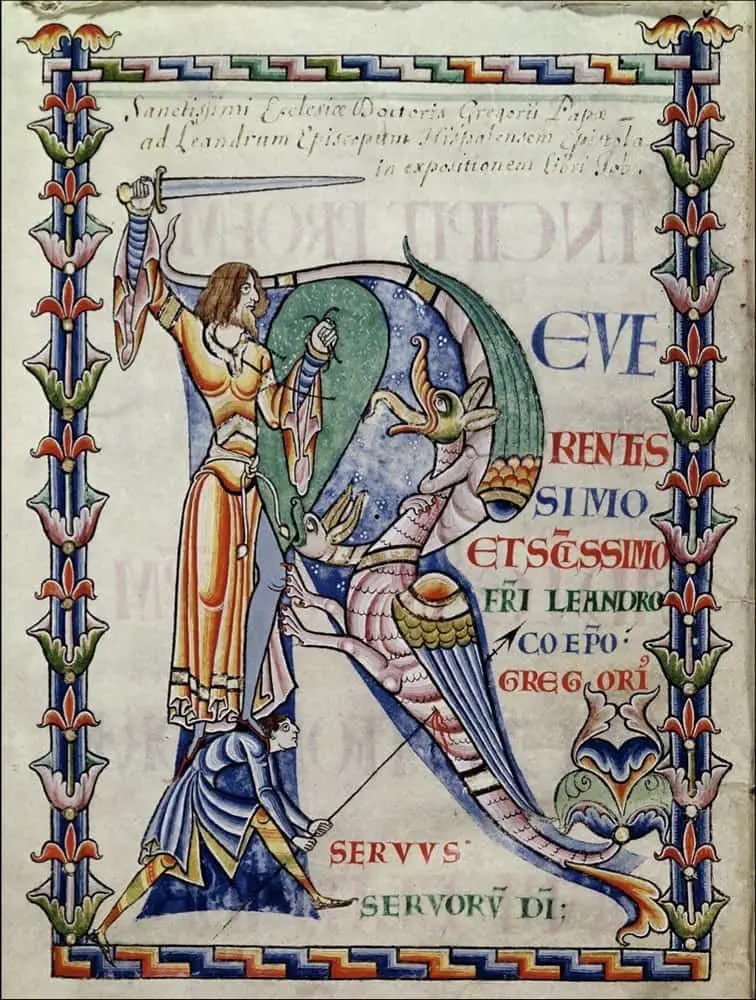 Sanctissimi Ecclesiæ Doctoris Gregorii Papæ
ad Leandrum Episcopum Hispalensem Epistola
in expositionem libri Job.
R EVE
RENTIS
SIMO
ET SC̄ISSIMO
FR̄I LEANDRO
COEP̄O:
GREGORI᾿
SERVVS
SERVORV̄ DI;